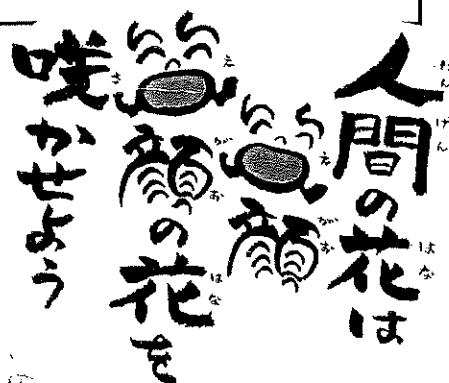 人間の花は
笑顔
笑顔の花を
咲かせよう